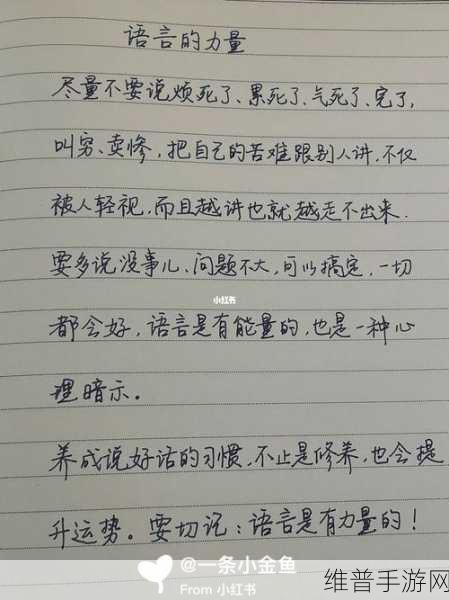 语言的力量
尽量不要说烦死了、累死了、气死了、完了,
叫穷、卖惨,把自己的苦难跟别人讲,不仅
被人轻视,而且越讲也就越走不出来.
要多说没事儿、问题不大,可以搞定,一切
小红书
都会好,语言是有能量的,也是一种心
理暗示。
养成说好话的习惯,不止是修养,也会提
升运势。要切记:语言是有力量的!
@一条小金鱼
From 小红书
维普手游网